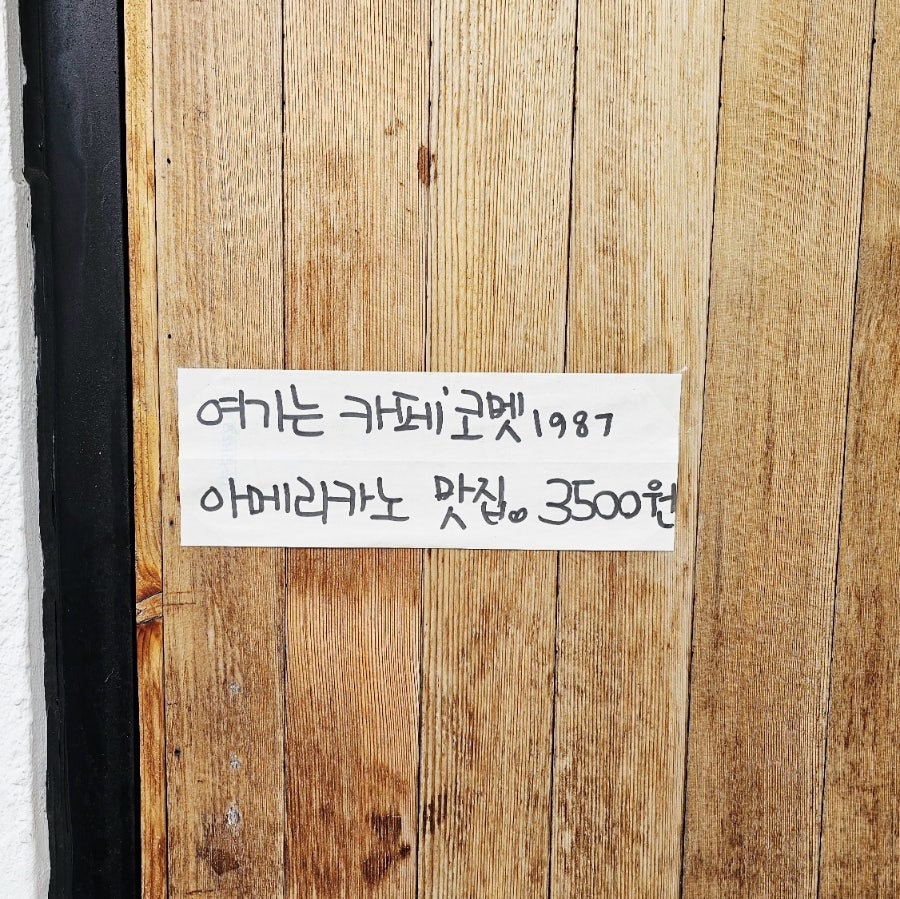 여기는 카페'코멧1987
아메리카노 맛집. 3500원